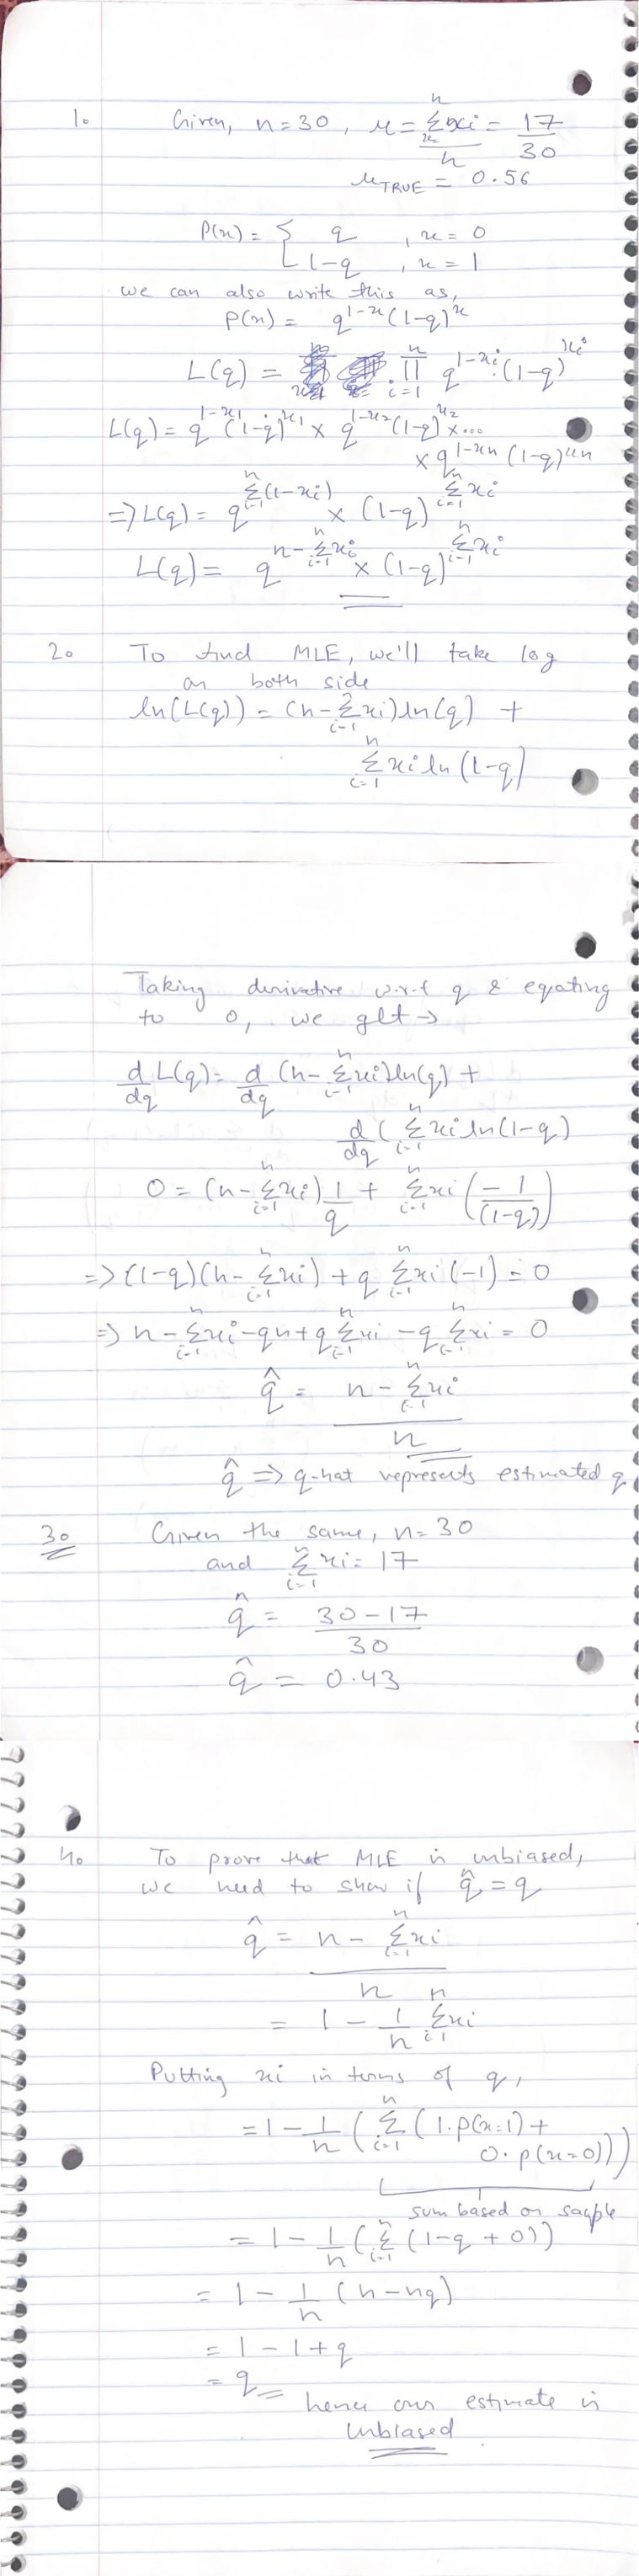 1. Given, n=30, μ = Σ_{i=1}^{n} xi / n = 17/30
μ_TRUE = 0.56
P(x) = { q , x = 0
1-q , x = 1
we can also write this as,
P(x) = q^{1-x} (1-q)^x
L(q) = ∏_{i=1}^{n} q^{1-xi} · (1-q)^{xi}
L(q) = q^{1-x1} (1-q)^{x1} × q^{1-x2} (1-q)^{x2} × ...
× q^{1-xn} (1-q)^{xn}
=> L(q) = q^{Σ_{i=1}^{n} (1-xi)} × (1-q)^{Σ_{i=1}^{n} xi}
L(q) = q^{n - Σ_{i=1}^{n} xi} × (1-q)^{Σ_{i=1}^{n} xi}
2. To find MLE, we'll take log
on both side
ln(L(q)) = (n - Σ_{i=1}^{n} xi) ln(q) +
Σ_{i=1}^{n} xi ln(1-q)
Taking derivative w.r.t q & eqating
to 0, we get →
d/dq L(q) = d/dq (n - Σ_{i=1}^{n} xi) ln(q) +
d/dq ( Σ_{i=1}^{n} xi ln(1-q)
0 = (n - Σ_{i=1}^{n} xi) 1/q + Σ_{i=1}^{n} xi (-1/(1-q))
=> (1-q)(n - Σ_{i=1}^{n} xi) + q Σ_{i=1}^{n} xi (-1) = 0
=> n - Σ_{i=1}^{n} xi - qn + q Σ_{i=1}^{n} xi - q Σ_{i=1}^{n} xi = 0
q̂ = (n - Σ_{i=1}^{n} xi) / n
q̂ => q-hat represents estimated q
3. Given the same, n=30
and Σ_{i=1}^{n} xi = 17
q̂ = (30-17) / 30
q̂ = 0.43
4. To prove that MLE is unbiased,
we need to show if q̂ = q
q̂ = (n - Σ_{i=1}^{n} xi) / n
= 1 - 1/n Σ_{i=1}^{n} xi
Putting xi in terms of q,
= 1 - 1/n ( Σ_{i=1}^{n} ( 1.p(x=1) +
0.p(x=0)))
sum based on sample
= 1 - 1/n ( Σ_{i=1}^{n} (1-q + 0))
= 1 - 1/n (n - nq)
= 1 - 1 + q
= q
hence our estimate is
unbiased